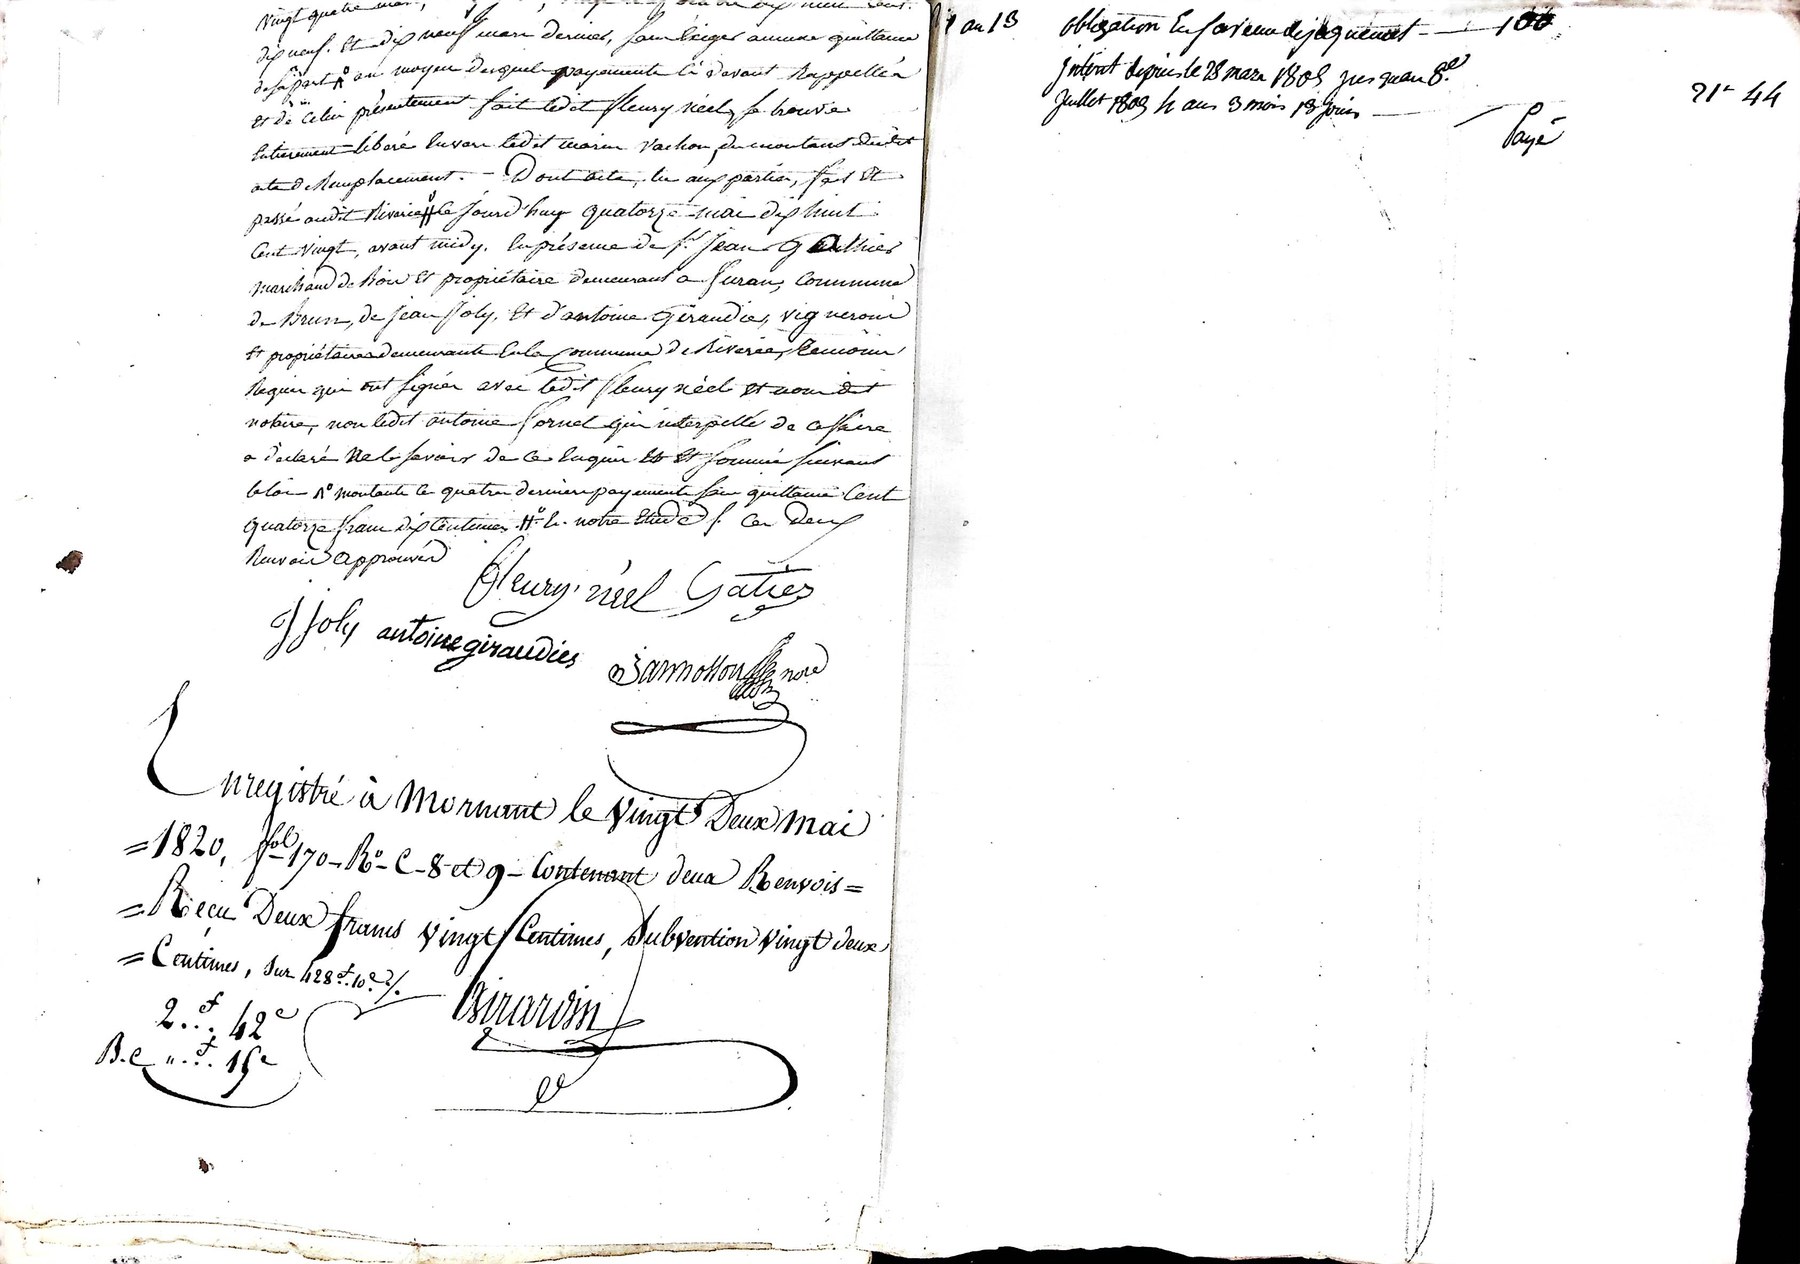 dix neuf. Et dix neuf mars dernier, sans exiger aucune quittance
de sa part /\° au moyen desquels payements ci devant Rappellés
et de celui présentement fait ledit fleury néel se trouve
Entierement libéré Envers ledit marin vachon, du montant dudit
acte de Remplacement. - Dont acte, lu aux parties, fait Et
passé audit Riverie H° ce jourd'huy quatorze mai dix huit
Cent vingt, avant midy. En présence de sr. Jean Gauthier
marchand de Bois Et propriétaire demeurant a Suran, commune
de Brun, de Jean Joly, Et d'antoine Giraudier, vignerons
Et propriétaires demeurants En la Commune de Riverie, temoins
Requis qui ont signés avec ledit fleury néel Et nous dit
notaire, non ledit antoine fornel qui interpellé de ce faire
a déclaré Ne le savoir de ce Enquis Et Sommé suivant
la loi. /\° montants ce quatre derniers payements sans quittance Cent
quatorze francs dix Centimes. H° En notre Etude ces deux
Renvois approuvés
fleury néel Gatier
J Joly antoine giraudier
nore
Enregistré à Mornant le vingt Deux Mai
=1820, fol-170-Ro-C-8 et 9-Contenant deux Renvois=
=Reçu Deux francs vingt Centimes, Subvention vingt deux
=Centimes, Sur 428f.10c./.
2..f. 42c
B.c "..f. 15c
Girardin
an 13 obligation En faveur de jaquemet — 100
jntérêt depuis le 28 mars 1805 jusquau 8e
Juillet 1809 4 ans 3 mois 13 jours — 21" 44
Payé